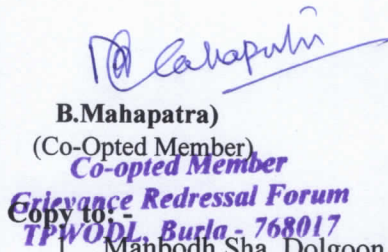 B.Mahapatra)
(Co-Opted Member)
Co-opted Member
Grievance Redressal Forum
Copy to: -
TPWODL, Burla - 768017
1. Manbodh Sha, Dolgoon